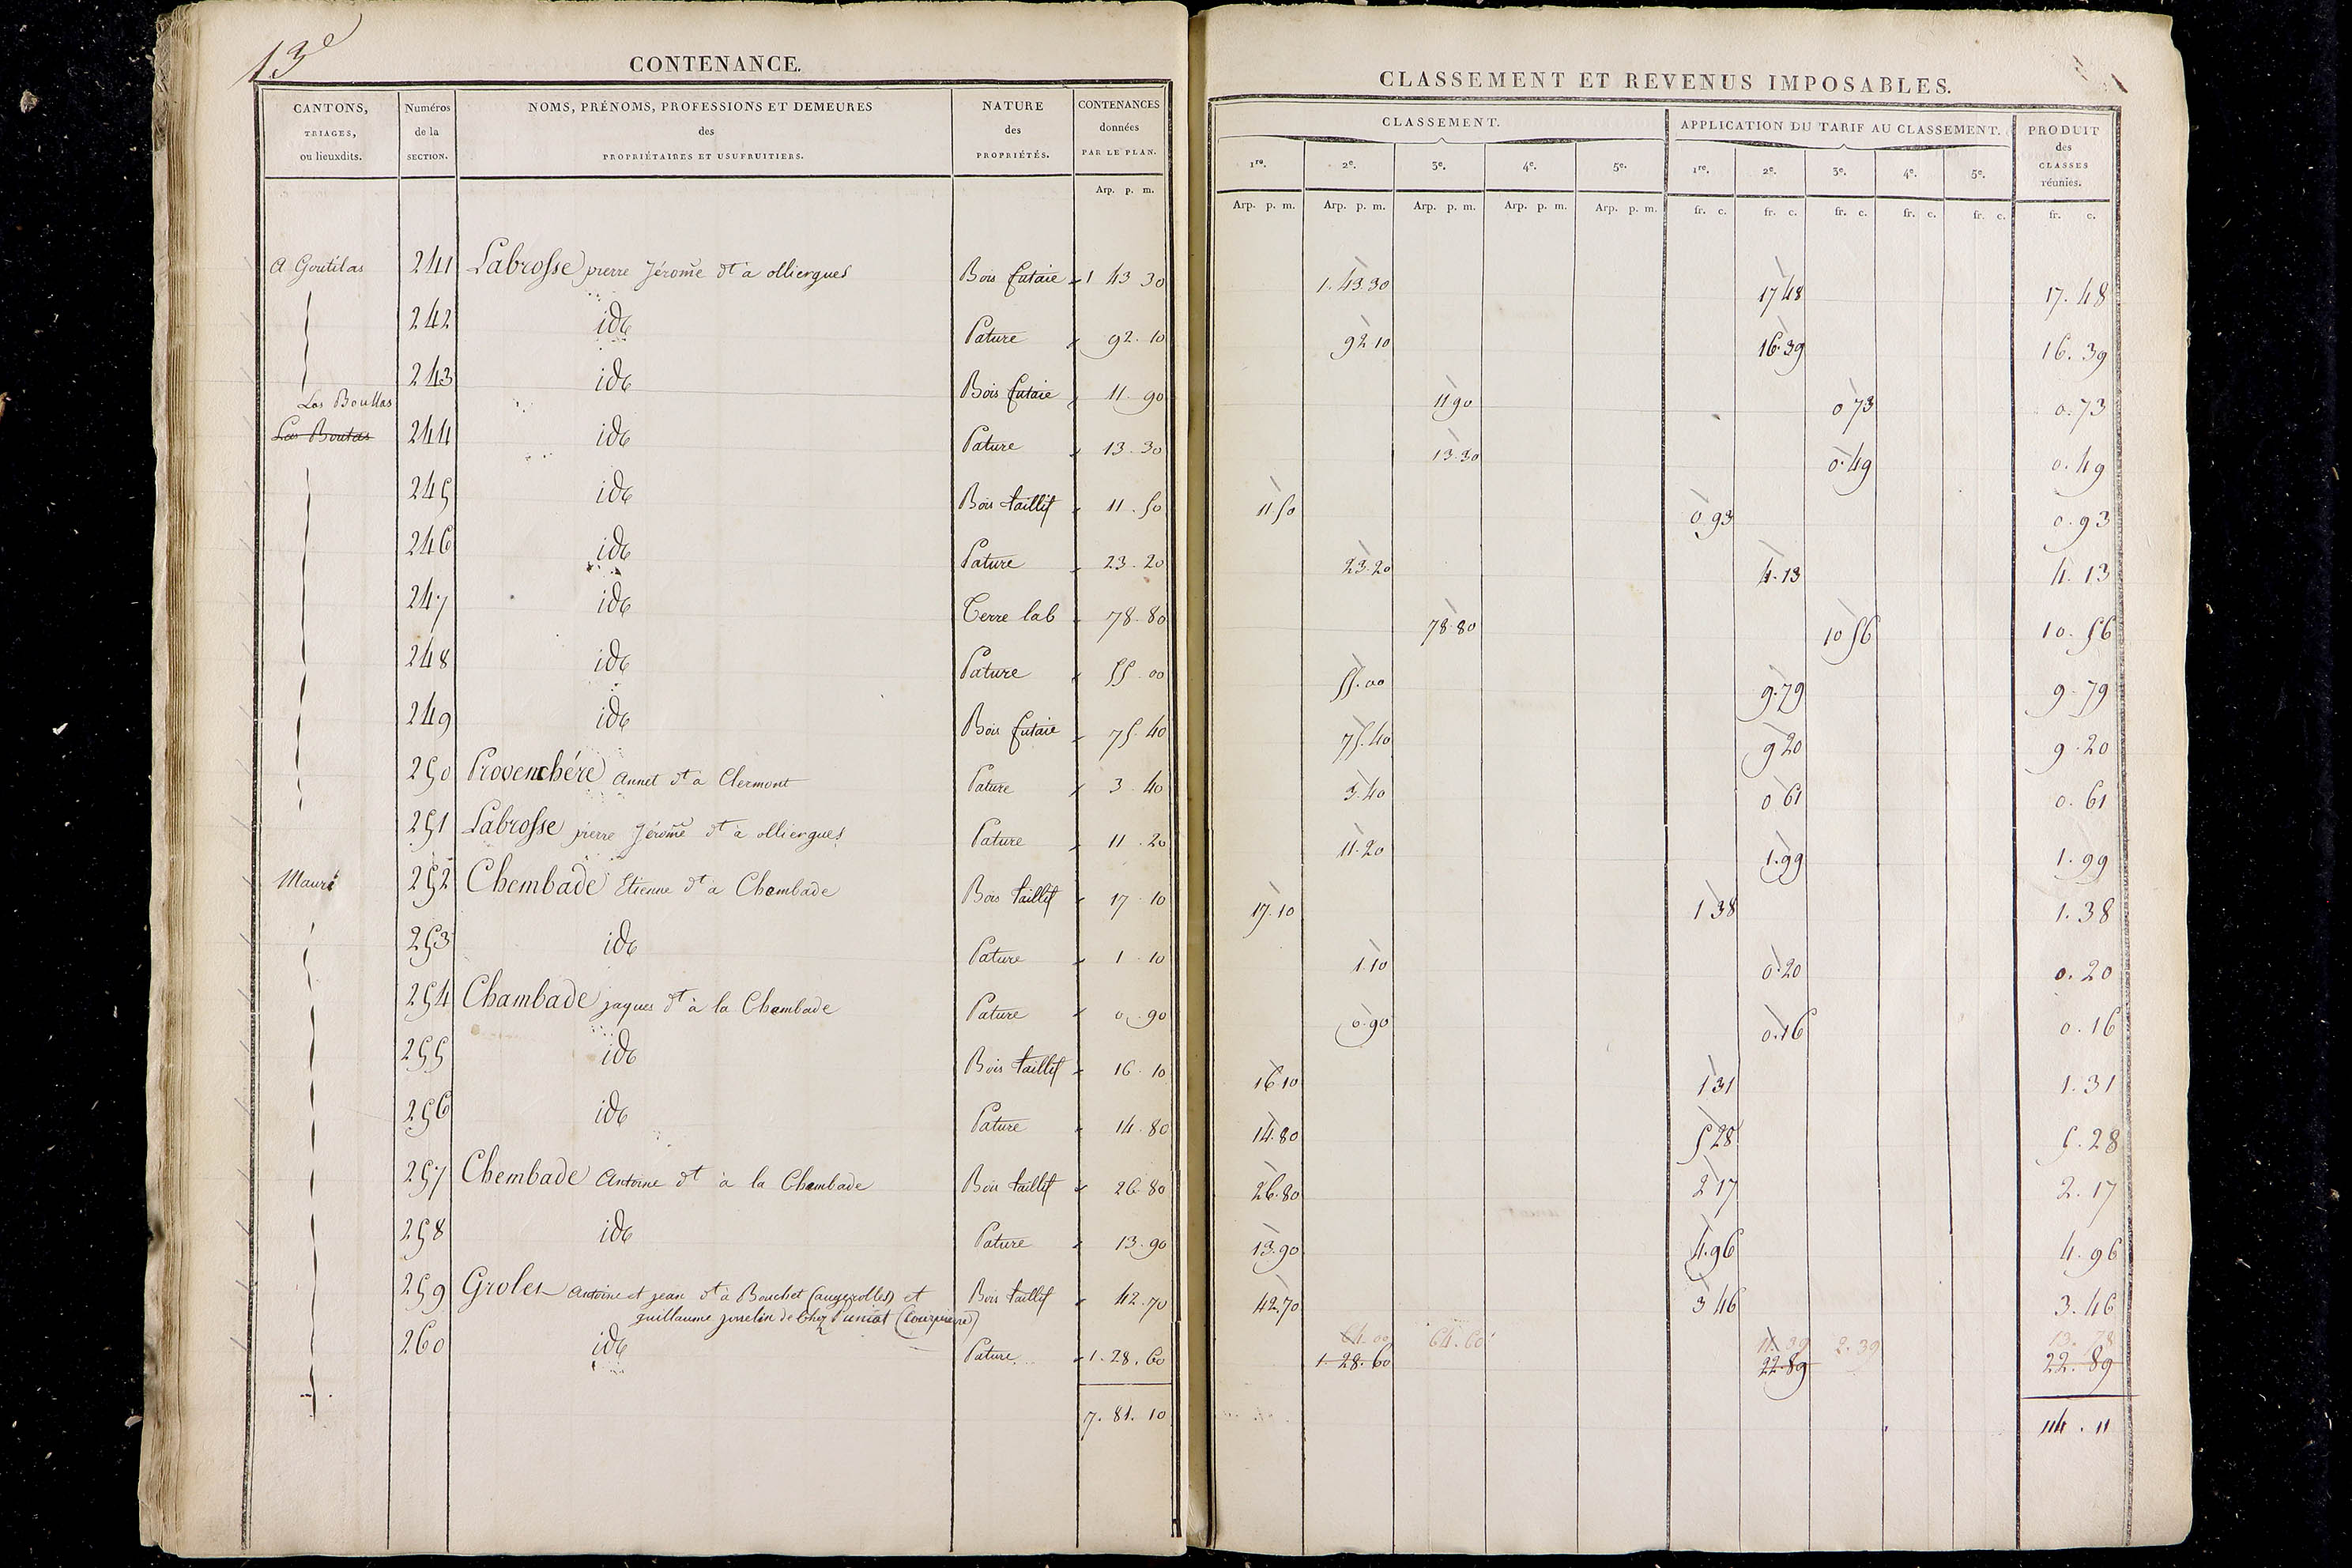 13e
CONTENANCE.
CANTONS, TRIAGES, ou lieuxdits. | Numéros de la SECTION. | NOMS, PRÉNOMS, PROFESSIONS ET DEMEURES des PROPRIÉTAIRES ET USUFRUITIERS. | NATURE des PROPRIÉTÉS. | CONTENANCES données PAR LE PLAN.
Arp. p. m.
CLASSEMENT ET REVENUS IMPOSABLES.
CLASSEMENT. | APPLICATION DU TARIF AU CLASSEMENT. | PRODUIT des CLASSES réunies.
1re. 2e. 3e. 4e. 5e. | 1re. 2e. 3e. 4e. 5e.
Arp. p. m. Arp. p. m. Arp. p. m. Arp. p. m. Arp. p. m. | fr. c. fr. c. fr. c. fr. c. fr. c. | fr. c.
A Goutilas 241 Labrosse pierre Jérome dt a olliergues Bois futaie 1 43 30 | 1. 43. 30 | 17 48 | 17. 48
242 ide Pature 92. 10 | 92 10 | 16. 39 | 16. 39
243 ide Bois futaie 11. 90 | 11 90 | 0 73 | 0. 73
Las Boullas
Las Boutas 244 ide Pature 13. 30 | 13. 30 | 0. 49 | 0. 49
245 ide Bois taillif 11. 50 | 11 50 | 0. 93 | 0. 93
246 ide Pature 23. 20 | 23. 20 | 4. 13 | 4. 13
247 ide Terre lab 78. 80 | 78. 80 | 10 56 | 10. 56
248 ide Pature 55. 00 | 55. 00 | 9. 79 | 9. 79
249 ide Bois futaie 75. 40 | 75. 40 | 9 20 | 9. 20
250 Provenchére Annet dt a Clermont Pature 3. 40 | 3. 40 | 0 61 | 0. 61
251 Labrosse pierre Jérome dt à olliergues Pature 11. 20 | 11. 20 | 1. 99 | 1. 99
Mauri 252 Chembade Etienne dt a Chambade Bois taillif 17. 10 | 17. 10 | 1 38 | 1. 38
253 ide Pature 1. 10 | 1. 10 | 0. 20 | 0. 20
254 Chambade jaques dt à la Chambade Pature 0. 90 | 0. 90 | 0. 16 | 0. 16
255 ide Bois taillif 16. 10 | 16 10 | 1 31 | 1. 31
256 ide Pature 14. 80 | 14. 80 | 5 28 | 5. 28
257 Chembade Antoine dt à la Chambade Bois taillif 26. 80 | 26. 80 | 2 17 | 2. 17
258 ide Pature 13. 90 | 13. 90 | 4. 96 | 4. 96
259 Groles Antoine et jean dt à Bouchet (augerolles) et Bois taillif 42. 70 | 42. 70 | 3 46 | 3. 46
guillaume josselin de Chez Puniat (Courpierre)
64. 00 64. 60 | 11. 39 2. 39 | 13. 78
260 ide Pature 1. 28. 60 | 1. 28. 60 | 22. 89 | 22. 89
7. 81. 10 | 114. 11